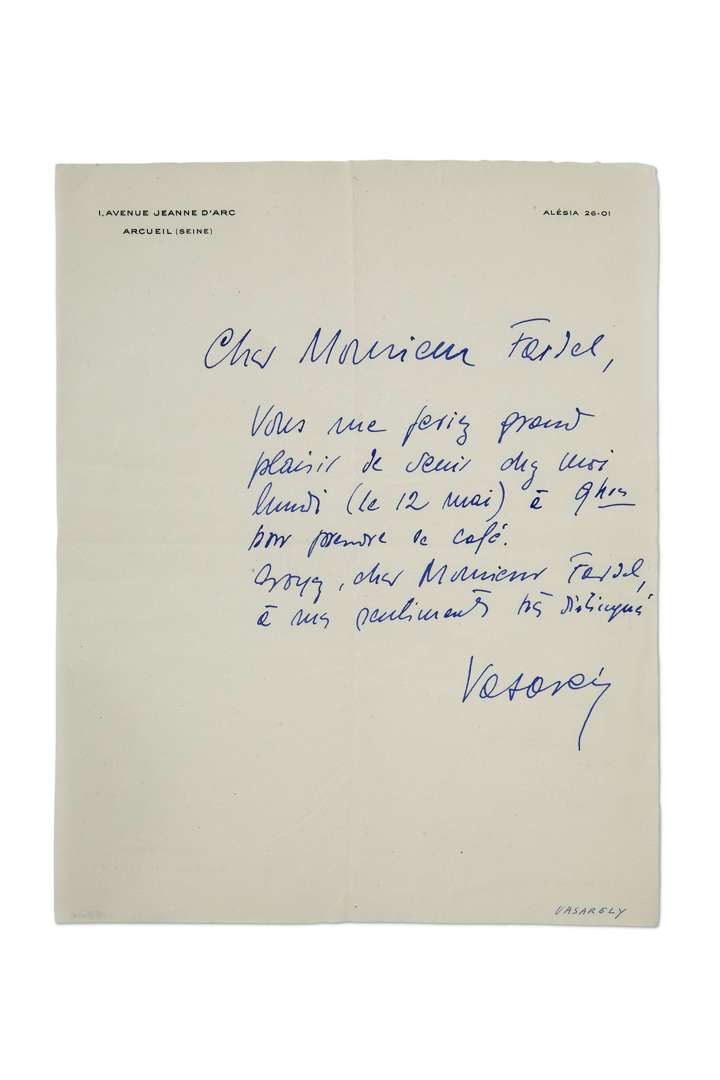 1, AVENUE JEANNE D'ARC
ARCUEIL (SEINE)
ALÉSIA 26-01
Cher Monsieur Fardel,
Vous me feriez grand
plaisir de venir chez moi
lundi (le 12 mai) à 9 hres
pour prendre le café.
Croyez, cher Monsieur Fardel,
à mes sentiments très distingués
Vasarely
VASARELY